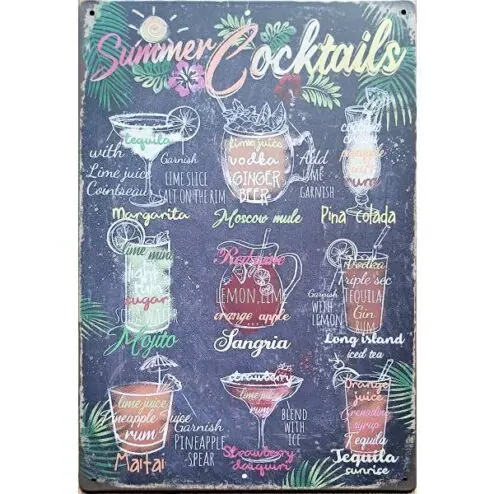 Summer Cocktails
tequila
with
Lime juice
Cointreau
Garnish
LIME SLICE
SALT ON THE RIM
Margarita
lime juice
vodka
GINGER
BEER
Add
LIME
GARNISH
Moscow mule
rum
Pina colada
lime mint
rum
sugar
Mojito
LEMON, LIME
orange apple
Sangria
Vodka
Triple sec
TEQUILA
Gin
RUM
Garnish
WITH
LEMON
Long island
iced tea
lime juice
Pineapple Juice
rum
Garnish
PINEAPPLE
-SPEAR
Maitai
strawberry
lime juice
rum
BLEND
WITH
ICE
Strawberry
daiquiri
Orange
juice
Grenadine
syrup
Tequila
Tequila
sunrise